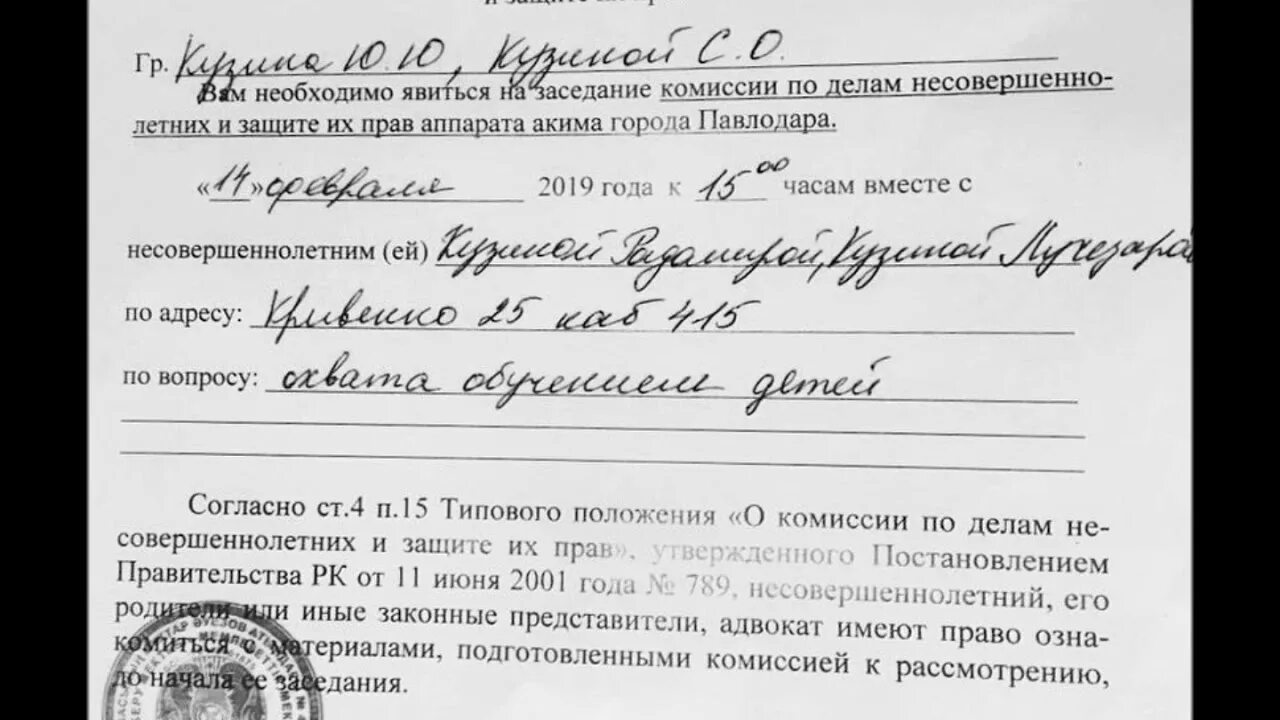 и защите их пра
Гр. Кузина Ю.Ю, Кузиной С.О.
Вам необходимо явиться на заседание комиссии по делам несовершенно-
летних и защите их прав аппарата акима города Павлодара.
«14» февраля 2019 года к 15⁰⁰ часам вместе с
несовершеннолетним (ей) Кузиной Радамирой, Кузиной Лучезарой
по адресу: Кривенко 25 каб 415
по вопросу: охвата обучением детей
Согласно ст.4 п.15 Типового положения «О комиссии по делам не-
совершеннолетних и защите их прав», утвержденного Постановлением
Правительства РК от 11 июня 2001 года № 789, несовершеннолетний, его
родители или иные законные представители, адвокат имеют право озна-
комиться с материалами, подготовленными комиссией к рассмотрению,
до начала ее заседания.